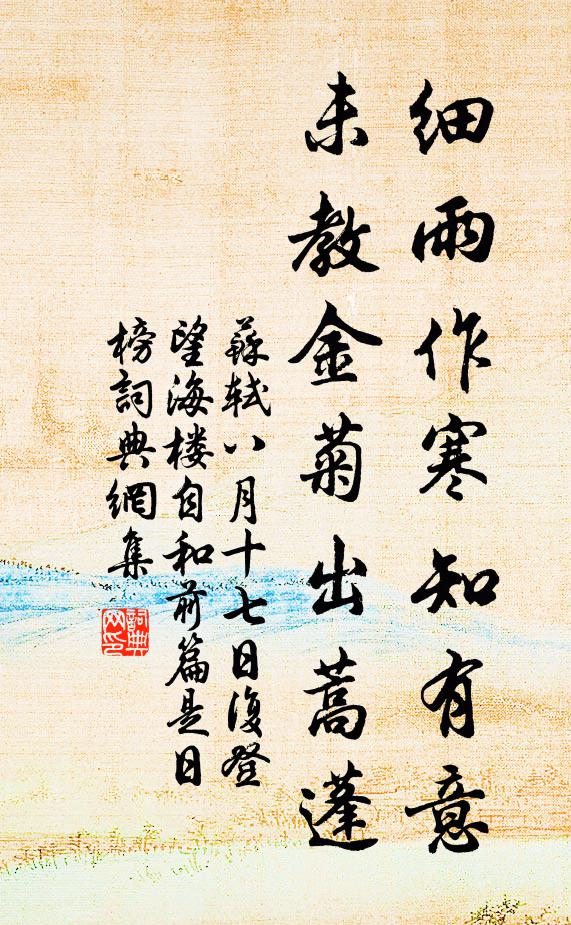 细雨作寒知有意
未教金菊出蒿蓬
蘇軾八月十七日復登
望海楼自和前篇是日
榜詞典網集
詞典
网印